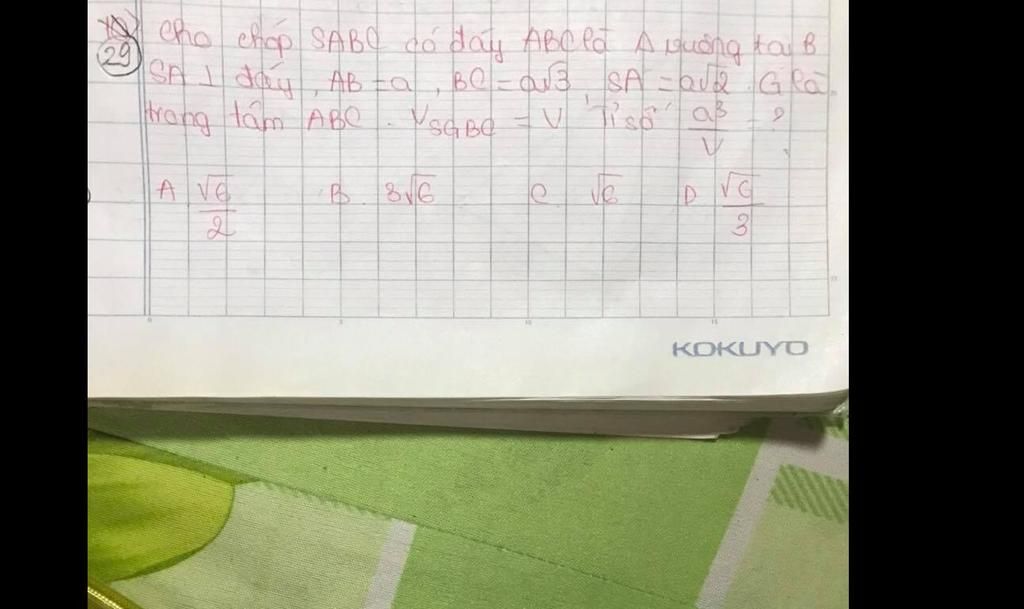 29 Cho chóp SABC có đáy ABC là Δ vuông tại B
SA ⊥ đáy, AB = a, BC = a√3, SA = a√2. G là
trọng tâm ABC. V_SGBC = V Tỉ số a³/V = ?
A √6/2 B. 3√6 C. √6 D √6/3
KOKUYO